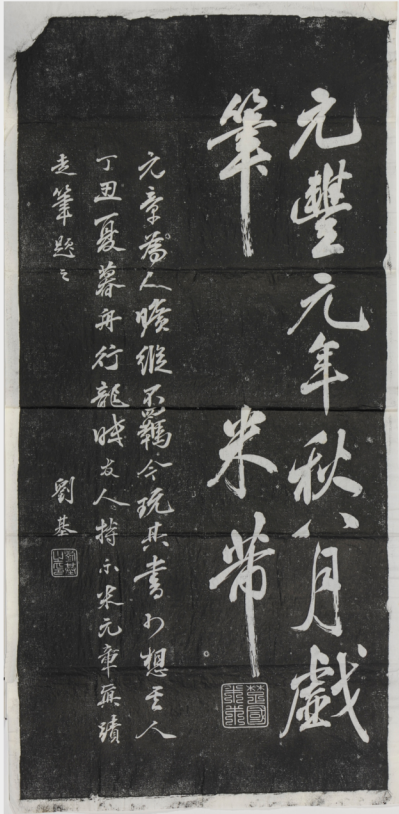 元豐元年秋八月戲
筆 米芾
元章為人曠縱不羈今玩其書可想其人
丁丑夏暮舟行龍 友人持示米元章蹟
走筆題之
劉基